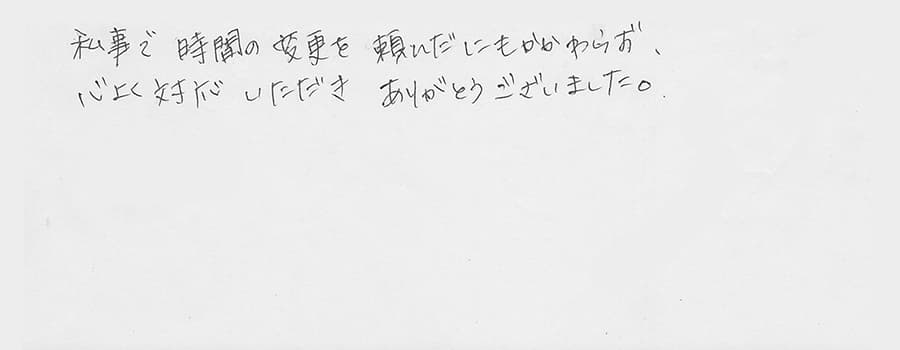 私事で 時間の 変更を 頼んだにもかかわらず、
心よく 対応 いただき ありがとうございました。